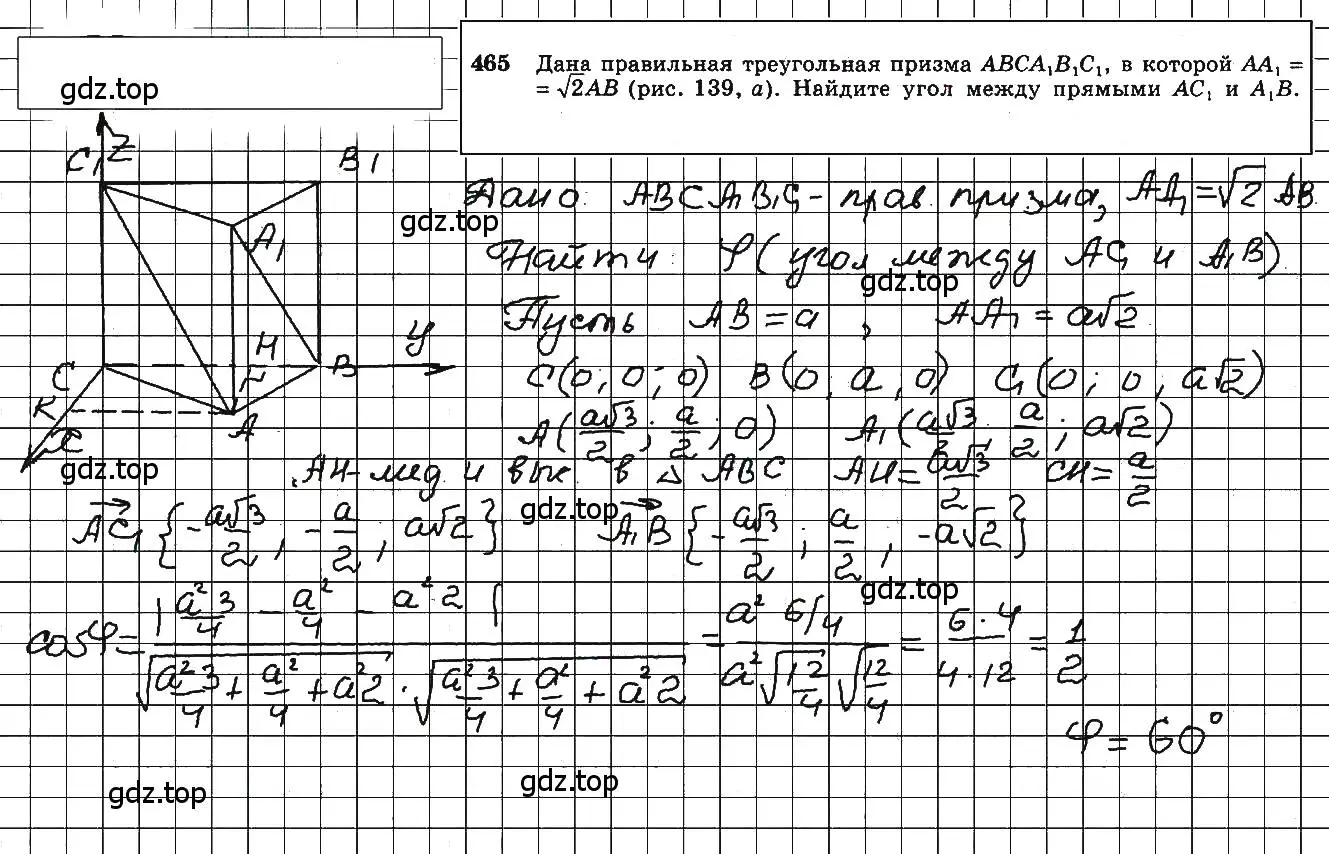 gdz.top
465 Дана правильная треугольная призма ABCA₁B₁C₁, в которой AA₁ =
= √2AB (рис. 139, а). Найдите угол между прямыми AC₁ и A₁B.
C₁ Z B₁
Дано ABCA₁B₁C₁ - прав. призма, AA₁ = √2 AB
gdz.top
A₁
Найти: φ (угол между AC₁ и A₁B)
gdz.top
Пусть AB = a, AA₁ = a√2
H У
C B
C(0; 0; 0) B(0, a, 0) C₁(0; 0, a√2)
K A
x
A(a√3/2; a/2; 0) A₁(a√3/2, a/2; a√2)
gdz.top
AH - мед. и выс. в △ ABC AH = a√3/2 CH = a/2
gdz.top
AC₁ {-a√3/2, -a/2, a√2} A₁B {-a√3/2; a/2, -a√2}
gdz.top
cos φ = |a²3/4 - a²/4 - a²·2| / (√(a²3/4 + a²/4 + a²2) · √(a²3/4 + a²/4 + a²2)) = a² 6/4 / (a² √(12/4) √(12/4)) = 6·4 / 4·12 = 1/2
φ = 60°
gdz.top
gdz.top